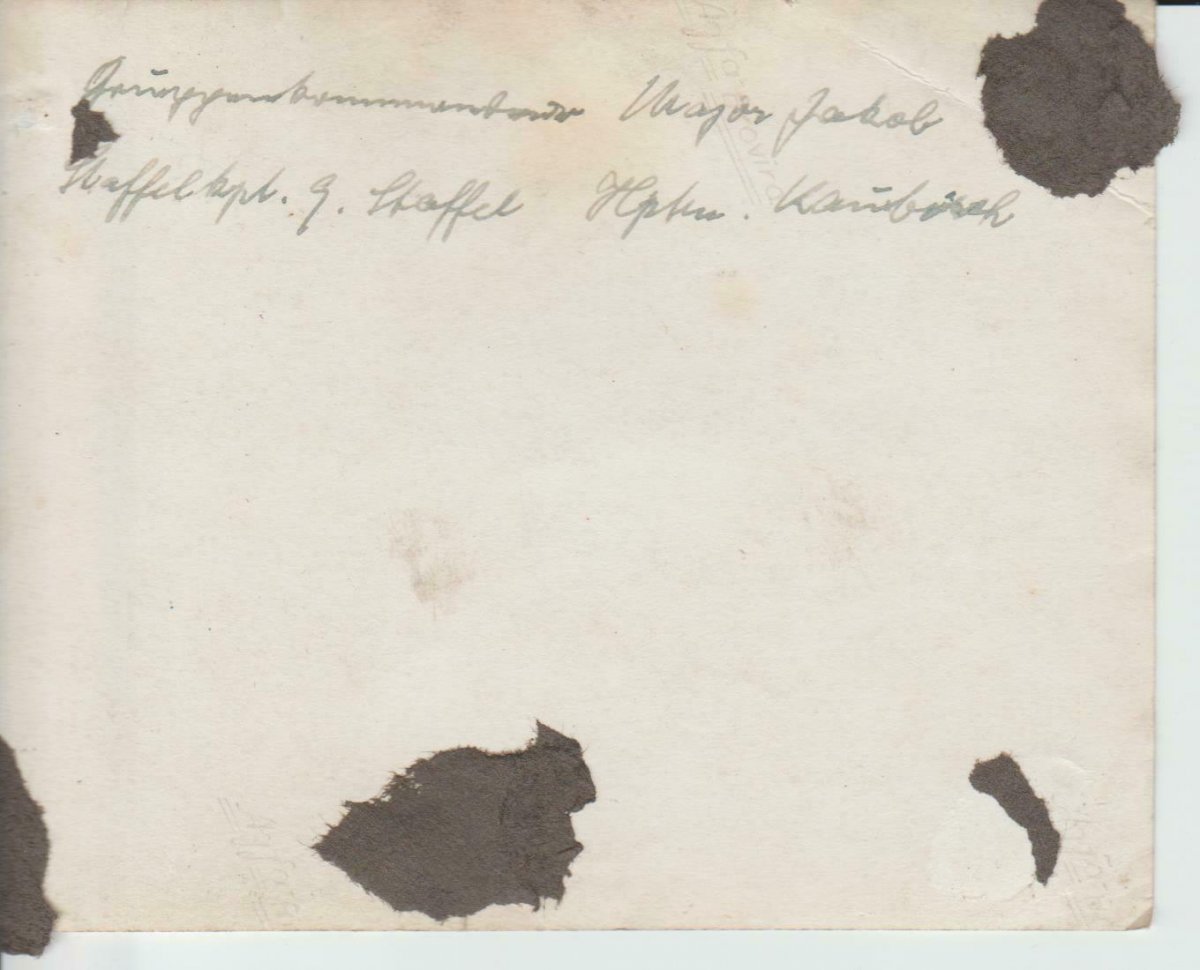 Gruppenkommandeur Major Jakob
Staffelkpt. 9. Staffel Hptm. Kaubisch